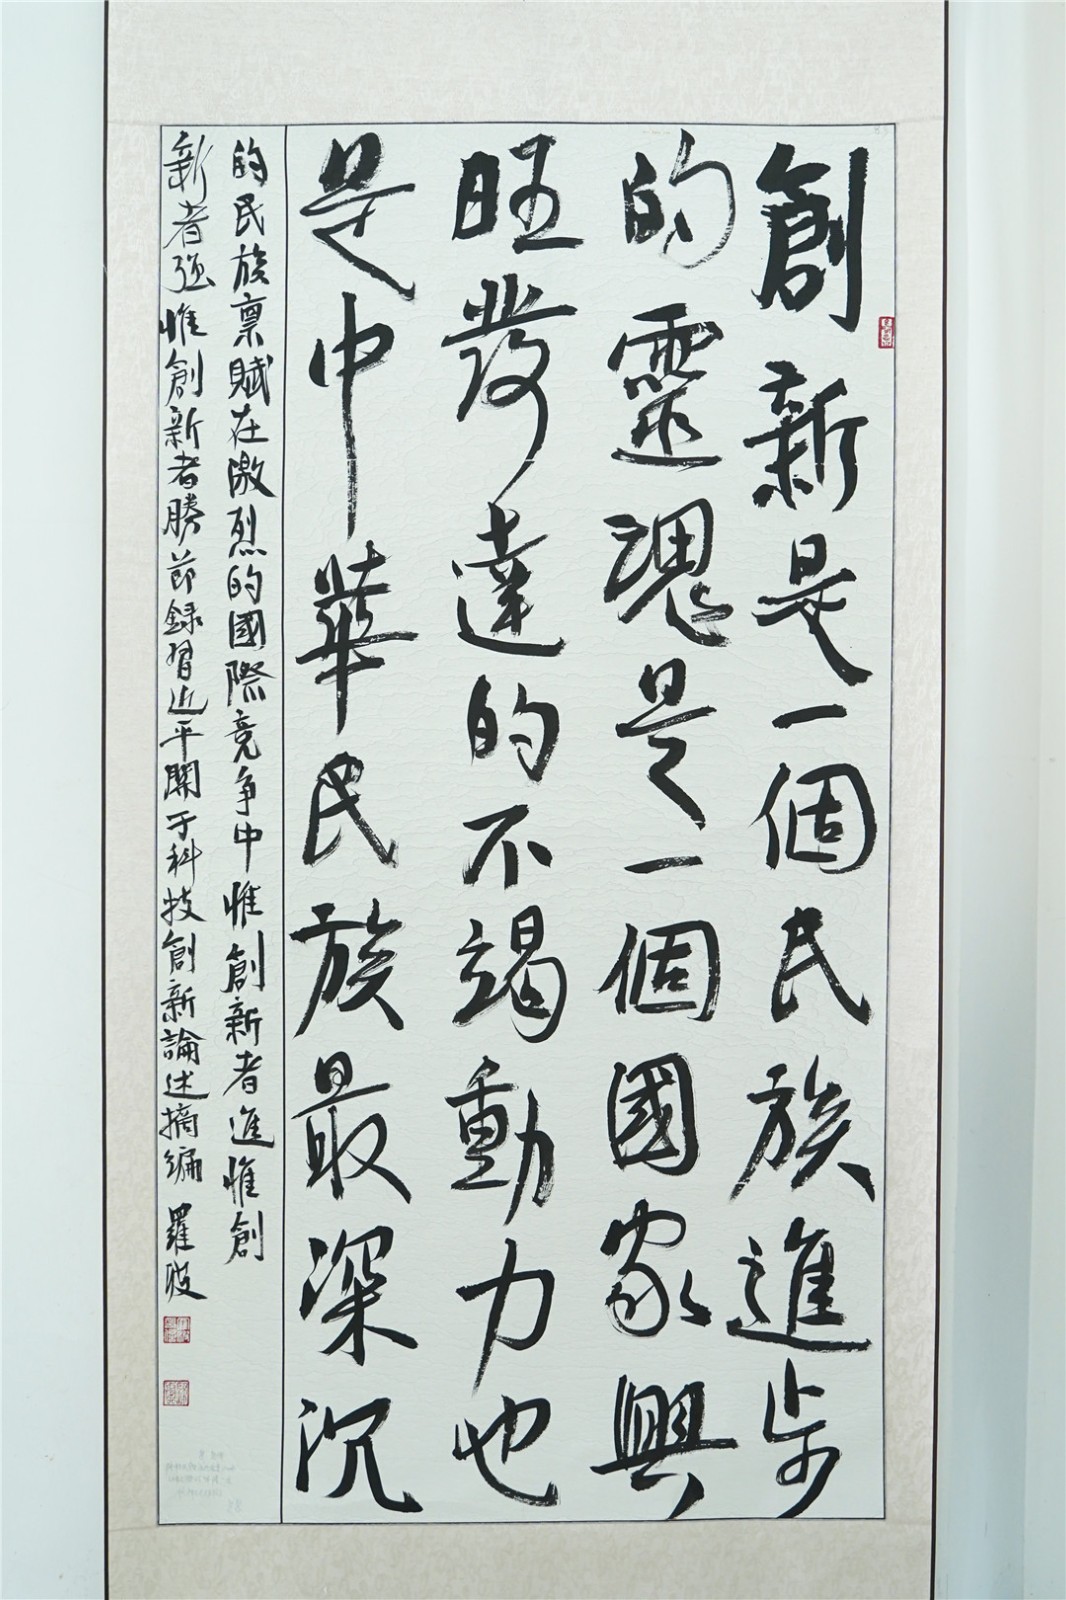 創新是一個民族進步
的靈魂是一個國家興
旺發達的不竭動力也
是中華民族最深沉
的民族禀賦在激烈的國際竞争中惟創新者進惟創
新者强惟創新者勝節録習近平關于科技創新論述摘编 羅暟